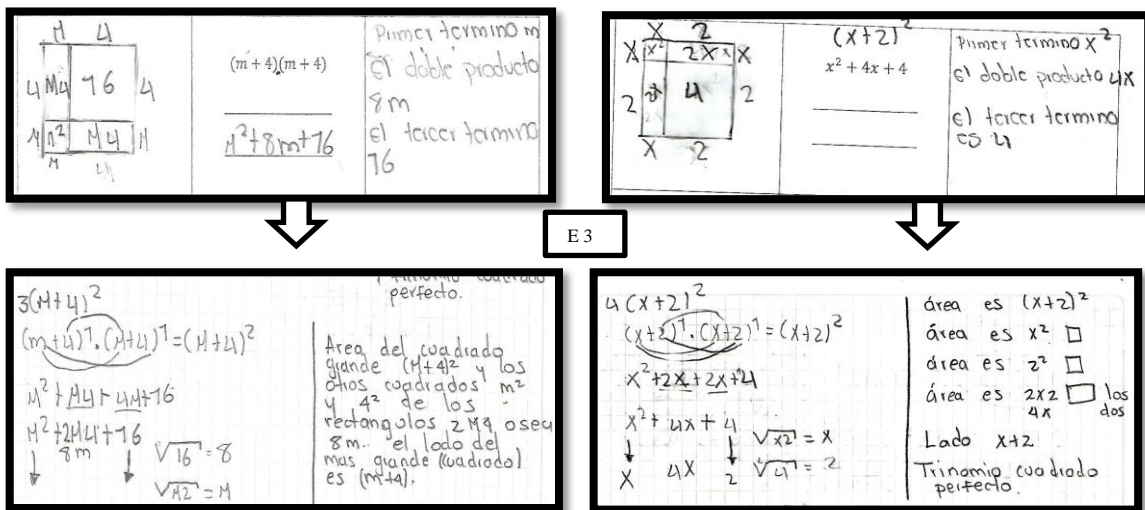 M 4
4 M4 16 4
M M² M4 M
M 4
(m + 4)(m + 4)
M²+8m+16
Primer termino m
El doble producto
8m
El tercer termino
16
X 2
X x² 2X x X
2 4 2
X 2
(X+2)²
x² + 4x + 4
Primer termino X²
El doble producto 4X
El tercer termino
es 4
E 3
3(M+4)²
(m+4)¹·(M+4)¹=(M+4)²
M²+M4+4M+16
M²+2M4+16
8m
√16=8
√M2=M
perfecto.
Area del cuadrado
grande (M+4)² y los
otros cuadrados m²
y 4² de los
rectangulos 2M4 osea
8m. el lado del
mas grande (cuadrado)
es (m+4).
4(X+2)²
(X+2)¹·(X+2)¹=(X+2)²
X²+2X+2X+4
X²+4X+4
√X2=X
X 4X 2
√4=2
área es (X+2)²
área es x²
área es 2²
área es 2X2 los
4X dos
Lado X+2
Trinomio cuadrado
perfecto.